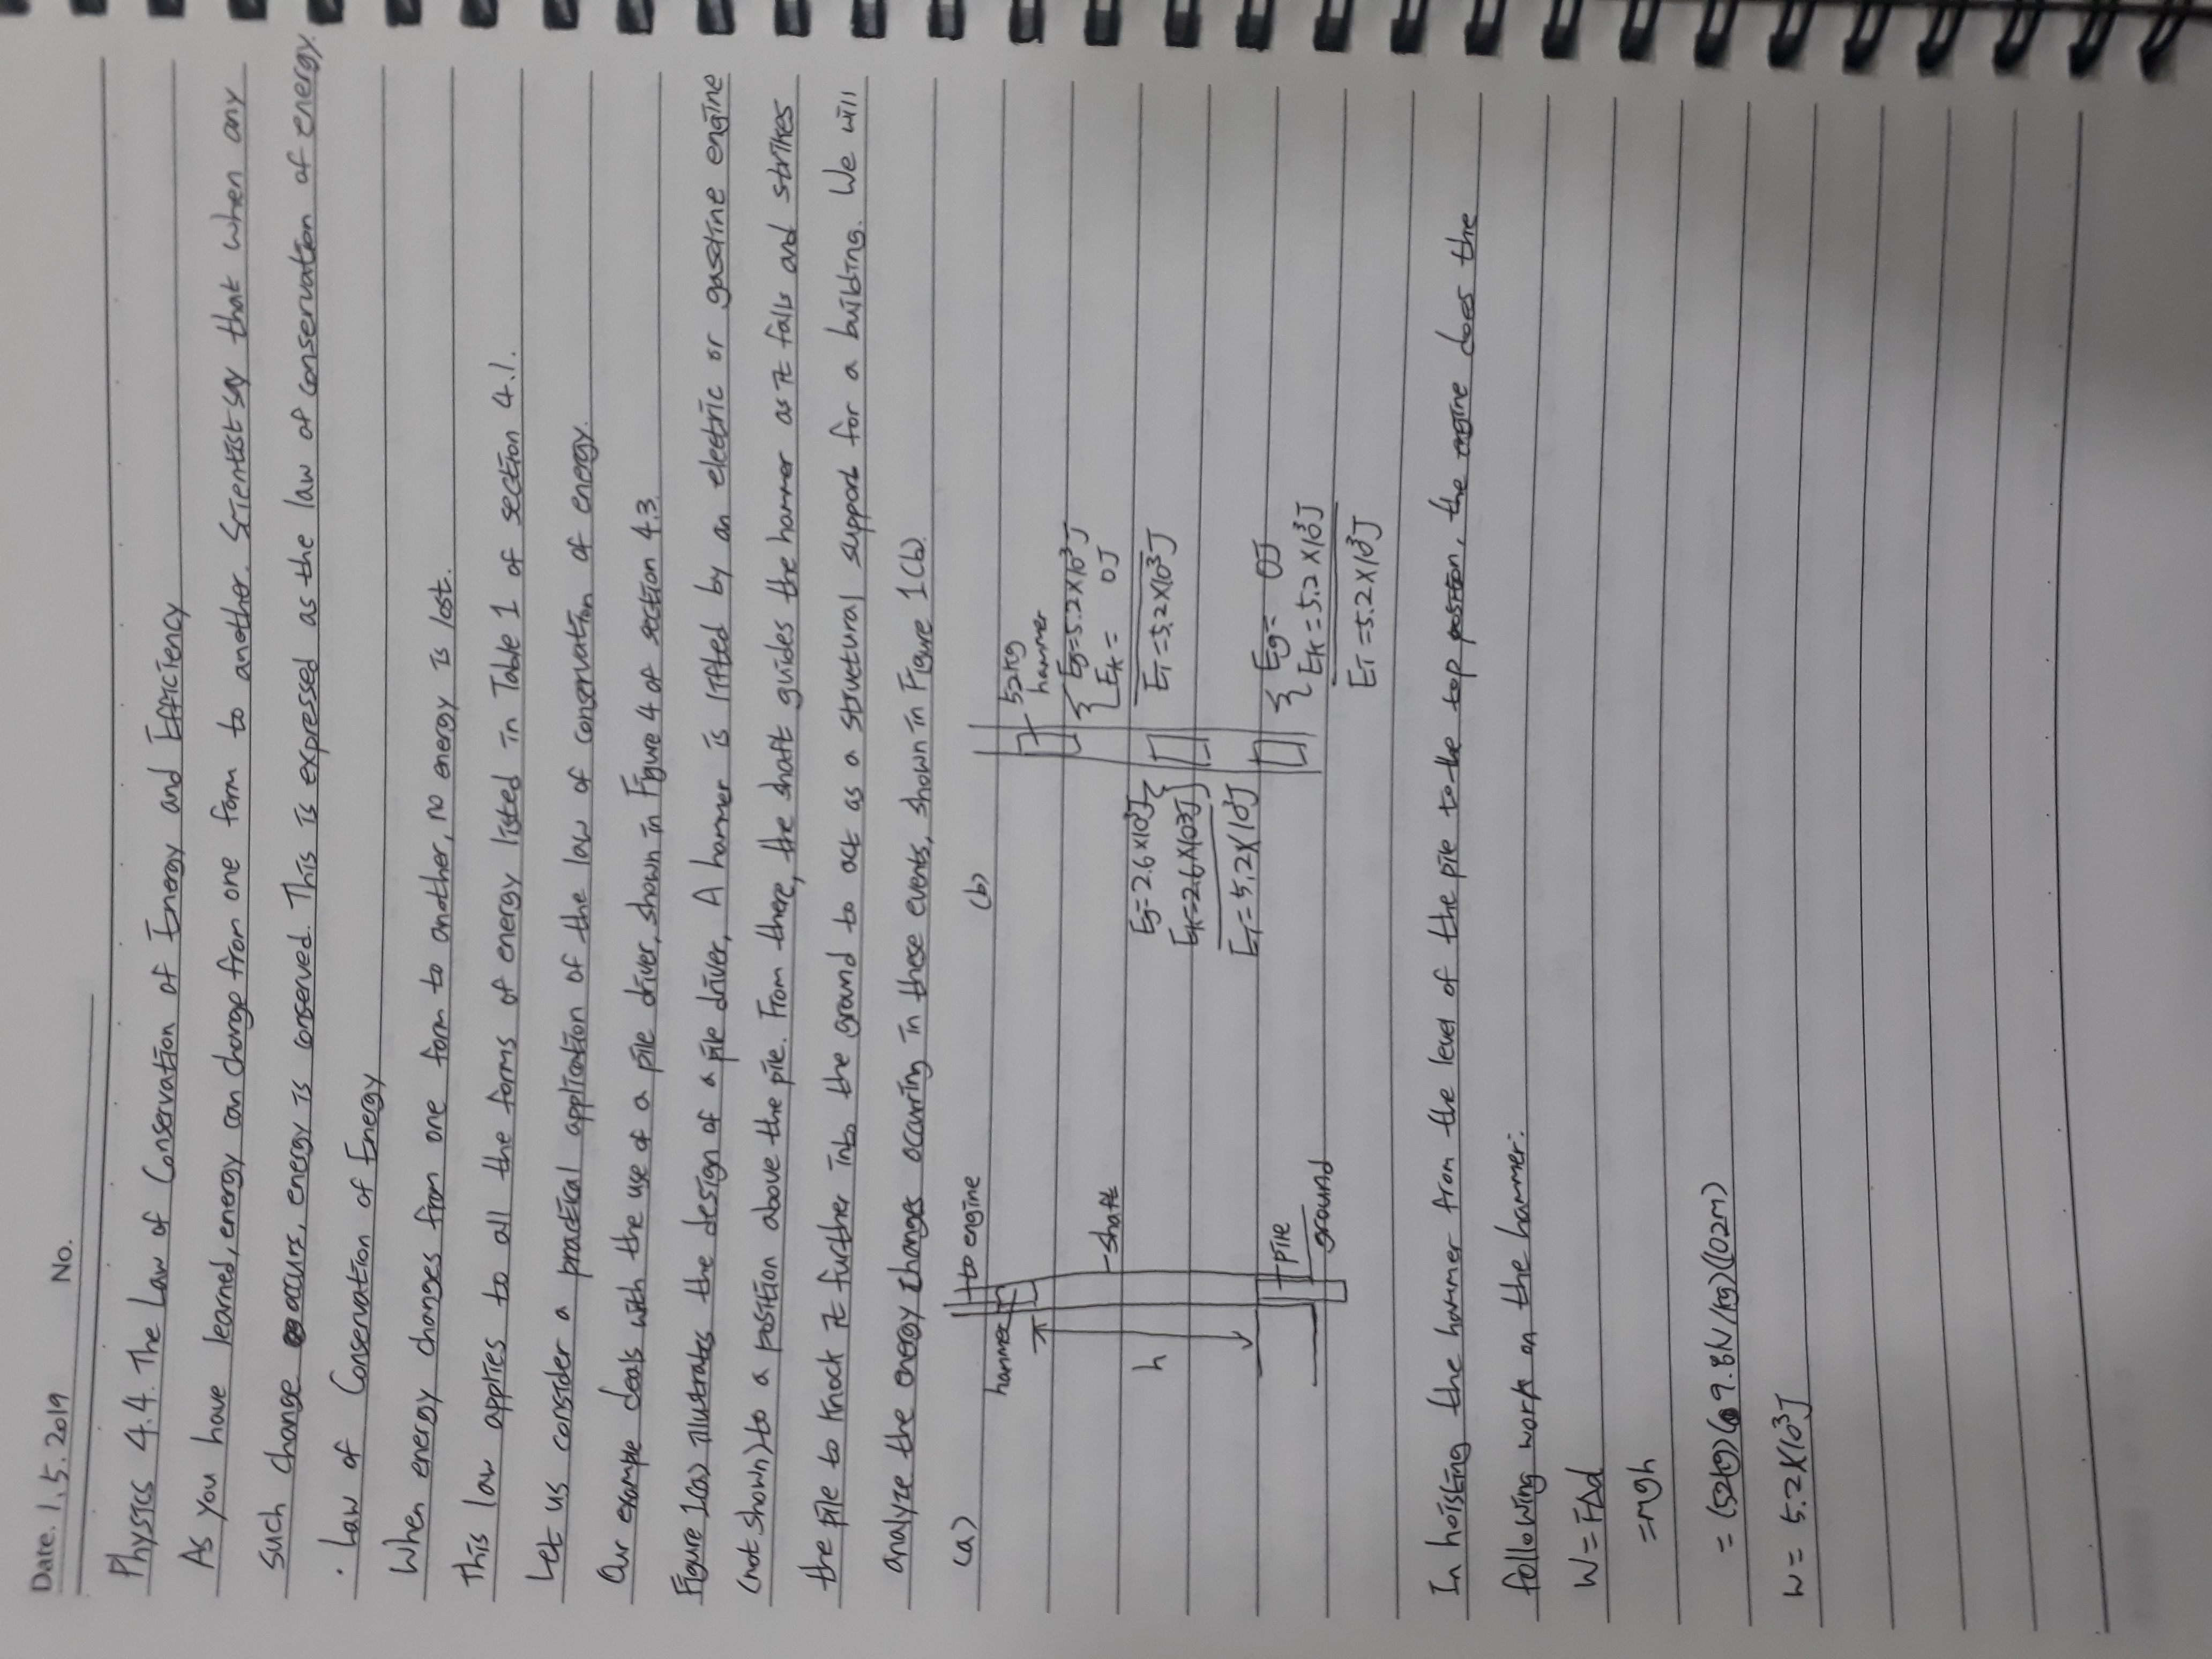 Date. 1. 5. 2019 No.
Physics 4.4. The Law of Conservation of Energy and Efficiency
As you have learned, energy can change from one form to another. Scientist say that when any
such change occurs, energy is conserved. This is expressed as the law of conservation of energy.
· Law of Conservation of Energy
When energy changes from one form to another, no energy is lost.
This law applies to all the forms of energy listed in Table 1 of section 4.1.
Let us consider a practical application of the law of conservation of energy.
Our example deals with the use of a pile driver, shown in Figure 4 of section 4.3
Figure 1(a) illustrates the design of a pile driver, A hammer is lifted by an electric or gasoline engine
(not shown) to a position above the pile. From there, the shaft guides the hammer as it falls and strikes
the pile to knock it further into the ground to act as a structural support for a building. We will
analyze the energy changes occurring in these events, shown in Figure 1(b).
(a)
to engine
hammer
shaft
h
pile
ground
(b)
52kg
hammer
Eg=5.2×10³J
Ek= 0J
ET=5.2×10³J
Eg=2.6×10³J
Ek=2.6×10³J
ET=5.2×10³J
Eg= 0J
Ek=5.2×10³J
ET=5.2×10³J
In hoisting the hammer from the level of the pile to the top position, the engine does the
following work on the hammer:
W=FΔd
=mgh
=(52kg)(9.8N/kg)(102m)
W= 5.2×10³J